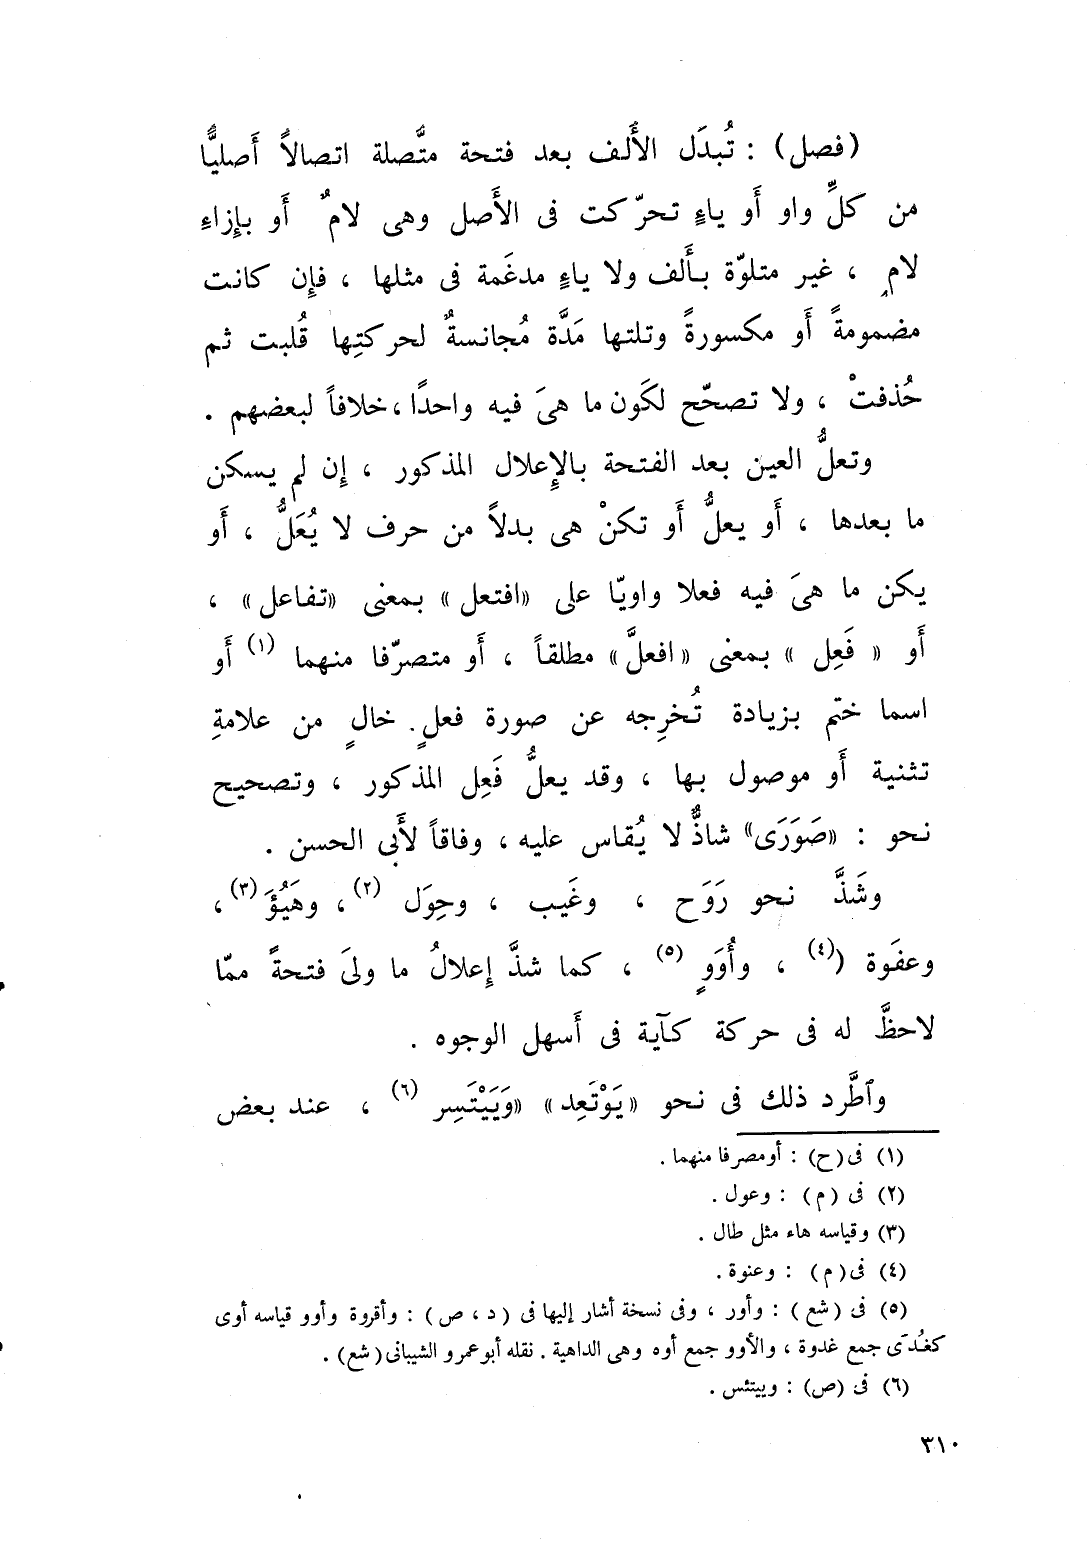 (فصل) : تُبدَل الأَلف بعد فتحة متَّصلة اتصالاً أَصليًّا
من كلِّ واو أَو ياءٍ تحرّكت فى الأَصل وهى لامٌ أَو بإِزاءِ
لامٍ ، غير متلوّة بأَلف ولا ياءٍ مدغَمة فى مثلها ، فإِن كانت
مضمومةً أَو مكسورةً وتلتها مَدَّة مُجانسةٌ لحركتِها قُلبت ثم
حُذفتْ ، ولا تصحّح لكَون ما هىَ فيه واحدًا ، خلافاً لبعضهم .
وتعلُّ العين بعد الفتحة بالإِعلال المذكور ، إِن لم يسكن
ما بعدها ، أَو يعلُّ أَو تكنْ هى بدلاً من حرف لا يُعَلُّ ، أَو
يكن ما هىَ فيه فعلا واويّا على «افتعل» بمعنى «تفاعل» ،
أَو « فَعِل » بمعنى «افعلَّ» مطلقاً ، أَو متصرّفا منهما (١) أَو
اسما ختم بزيادة تُخرِجه عن صورة فعلٍ خالٍ من علامةِ
تثنية أَو موصول بها ، وقد يعلُّ فَعِل المذكور ، وتصحيح
نحو : «صَوَرَى» شاذٌّ لا يُقاس عليه ، وفاقاً لأَبى الحسن .
وشَذَّ نحو رَوَح ، وغَيب ، وحِوَل (٢) ، وهَيُؤَ (٣) ،
وعفَوة (٤) ، وأُوَوٍ (٥) ، كما شذَّ إِعلالُ ما ولىَ فتحةً ممّا
لاحظَّ له فى حركة كآية فى أَسهل الوجوه .
وٱطَّرد ذلك فى نحو «يَوْتَعِد» «وَيَيْتَسِر (٦) ، عند بعض
(١) فى (ح) : أومصرفا منهما .
(٢) فى (م) : وعول .
(٣) وقياسه هاء مثل طال .
(٤) فى (م) : وعنوة .
(٥) فى (شع) : وأور ، وفى نسخة أشار إليها فى (د ، ص) : وأقروة وأوو قياسه أوى
كغُدَى جمع غدوة ، والأوو جمع أوه وهى الداهية . نقله أبو عمرو الشيبانى (شع) .
(٦) فى (ص) : وييتئس .
٣١٠